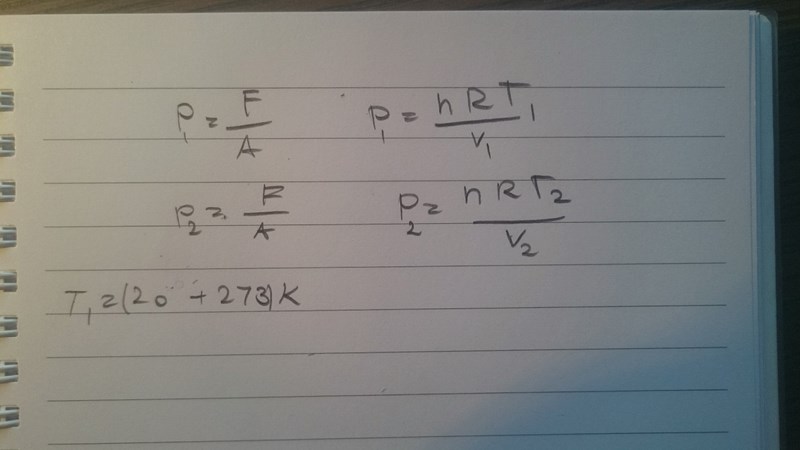 P₁ = F/A    P₁ = nRT₁/V₁
P₂ = F/A    P₂ = nRT₂/V₂
T₁ = (20 + 273)K